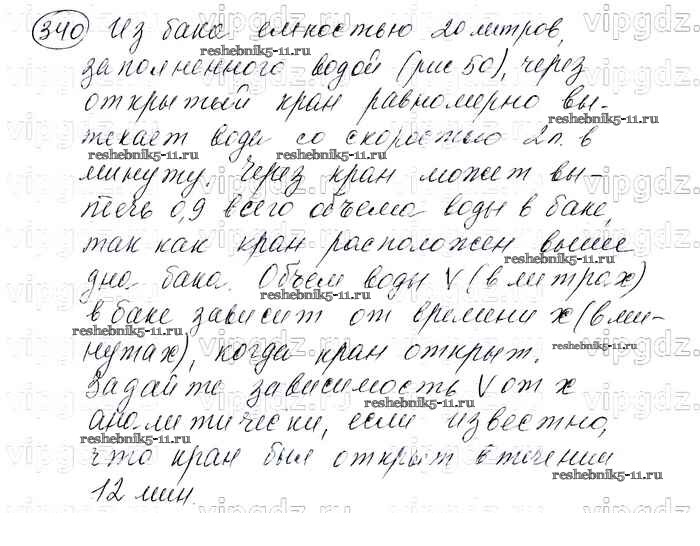 340 Из бака емкостью 20 литров,
заполненного водой (рис 50), через
открытый кран равномерно вы-
текает вода со скоростью 2л. в
минуту. Через кран может вы-
течь 0,9 всего объема воды в баке,
так как кран расположен выше
дна бака. Объем воды V (в литрах)
в баке зависит от времени x (в ми-
нутах), когда кран открыт.
Задайте зависимость V от x
аналитически, если известно,
что кран был открыт в течении
12 мин.
reshebnik5-11.ru
vipgdz.ru